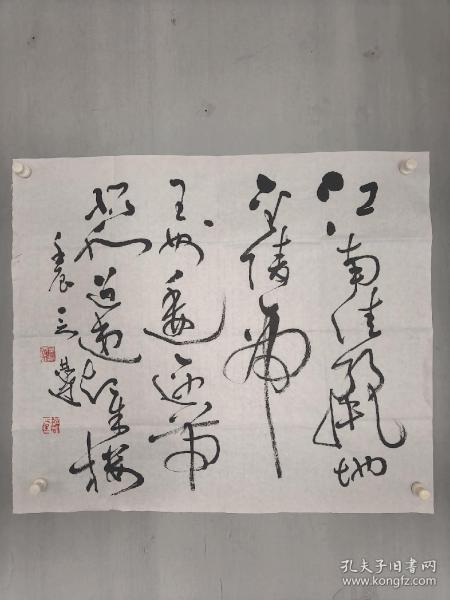 江南佳麗地
金陵帝
王州逶迤带
緑水迢递起朱楼
壬辰
孔夫子旧书网
www.kongfz.com